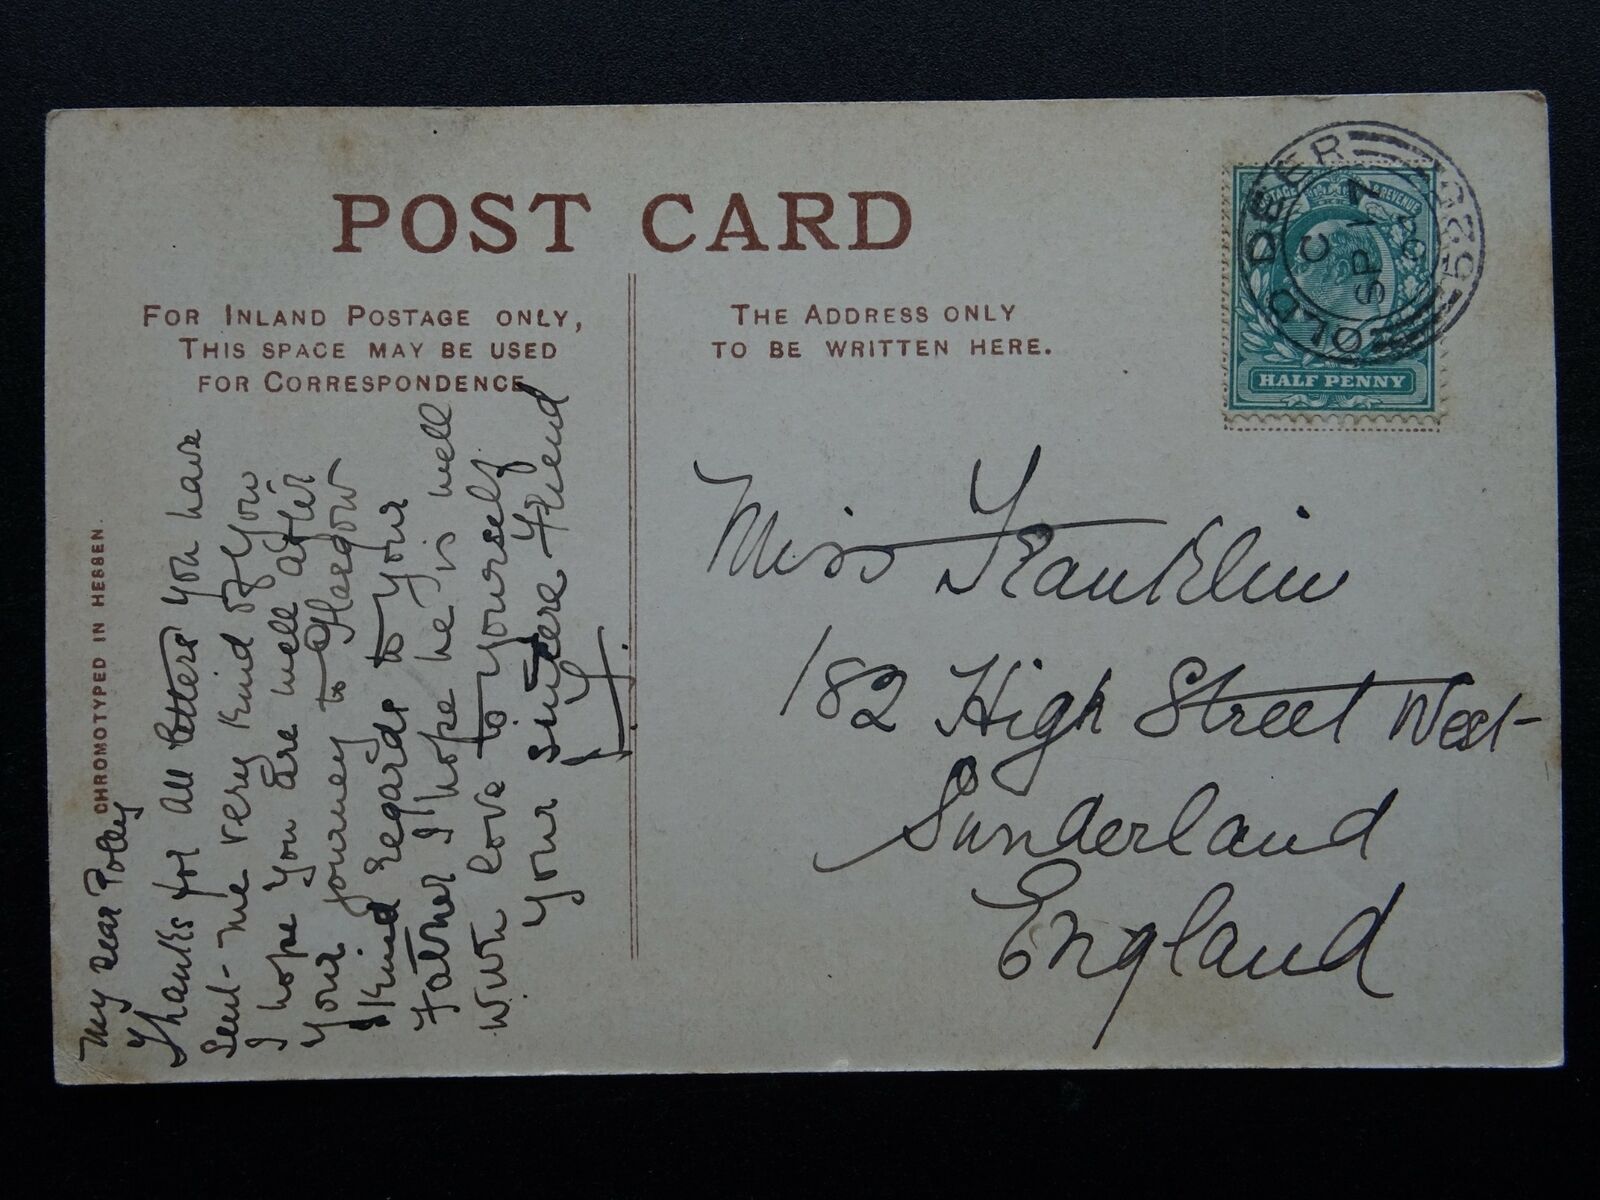 POST CARD
FOR INLAND POSTAGE ONLY,
THIS SPACE MAY BE USED
FOR CORRESPONDENCE
THE ADDRESS ONLY
TO BE WRITTEN HERE.
CHROMOTYPED IN HESSEN.
My dear Polly
Thanks for all letters you have
sent me very kind of you
I hope you are well after
your journey to Glasgow
Kind regards to your
Father I hope he is well
with love to yourself
your sincere Friend
Miss Franklin
182 High Street West
Sunderland
England
POSTAGE REVENUE
HALF PENNY
OLD DEER
C
SP 17